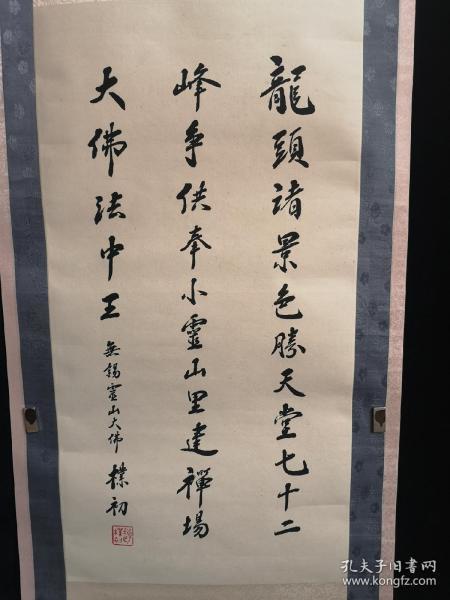 龍頭諸景色勝天堂七十二
峰爭供奉小靈山里建禪場
大佛法中王
無錫靈山大佛 樸初
孔夫子旧书网
www.kongfz.com